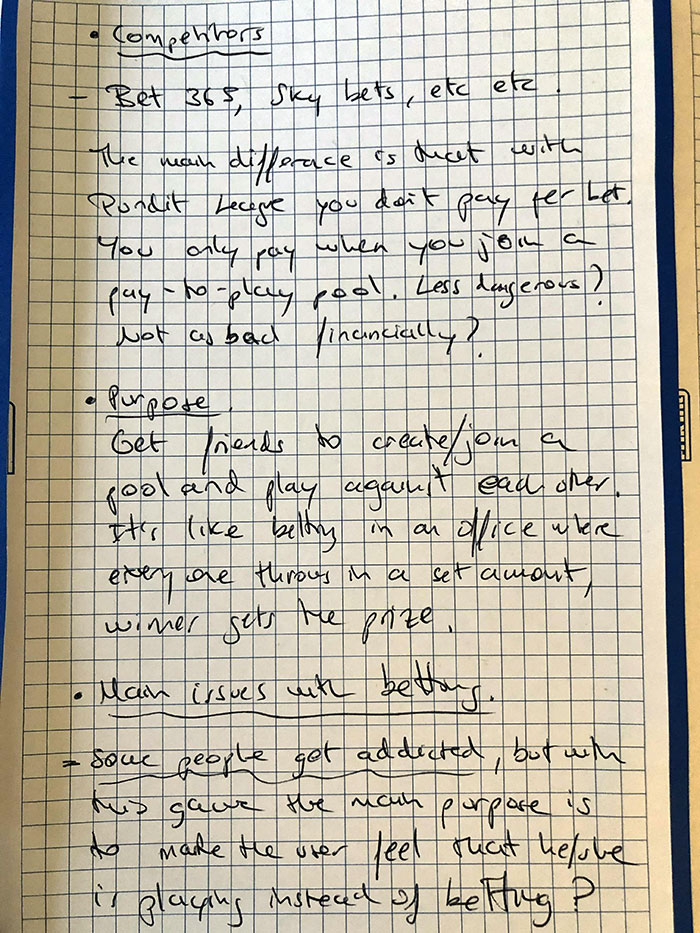 • Competitors
- Bet 365, Sky bets, etc etc.
The main difference is that with
Pundit League you don't pay per bet.
You only pay when you join a
pay-to-play pool. Less dangerous?
Not as bad financially?
• Purpose.
Get friends to create/join a
pool and play against each other.
It's like betting in an office where
everyone throws in a set amount,
winner gets the prize.
• Main issues with betting.
- Some people get addicted, but with
this game the main purpose is
to make the user feel that he/she
is playing instead of betting?